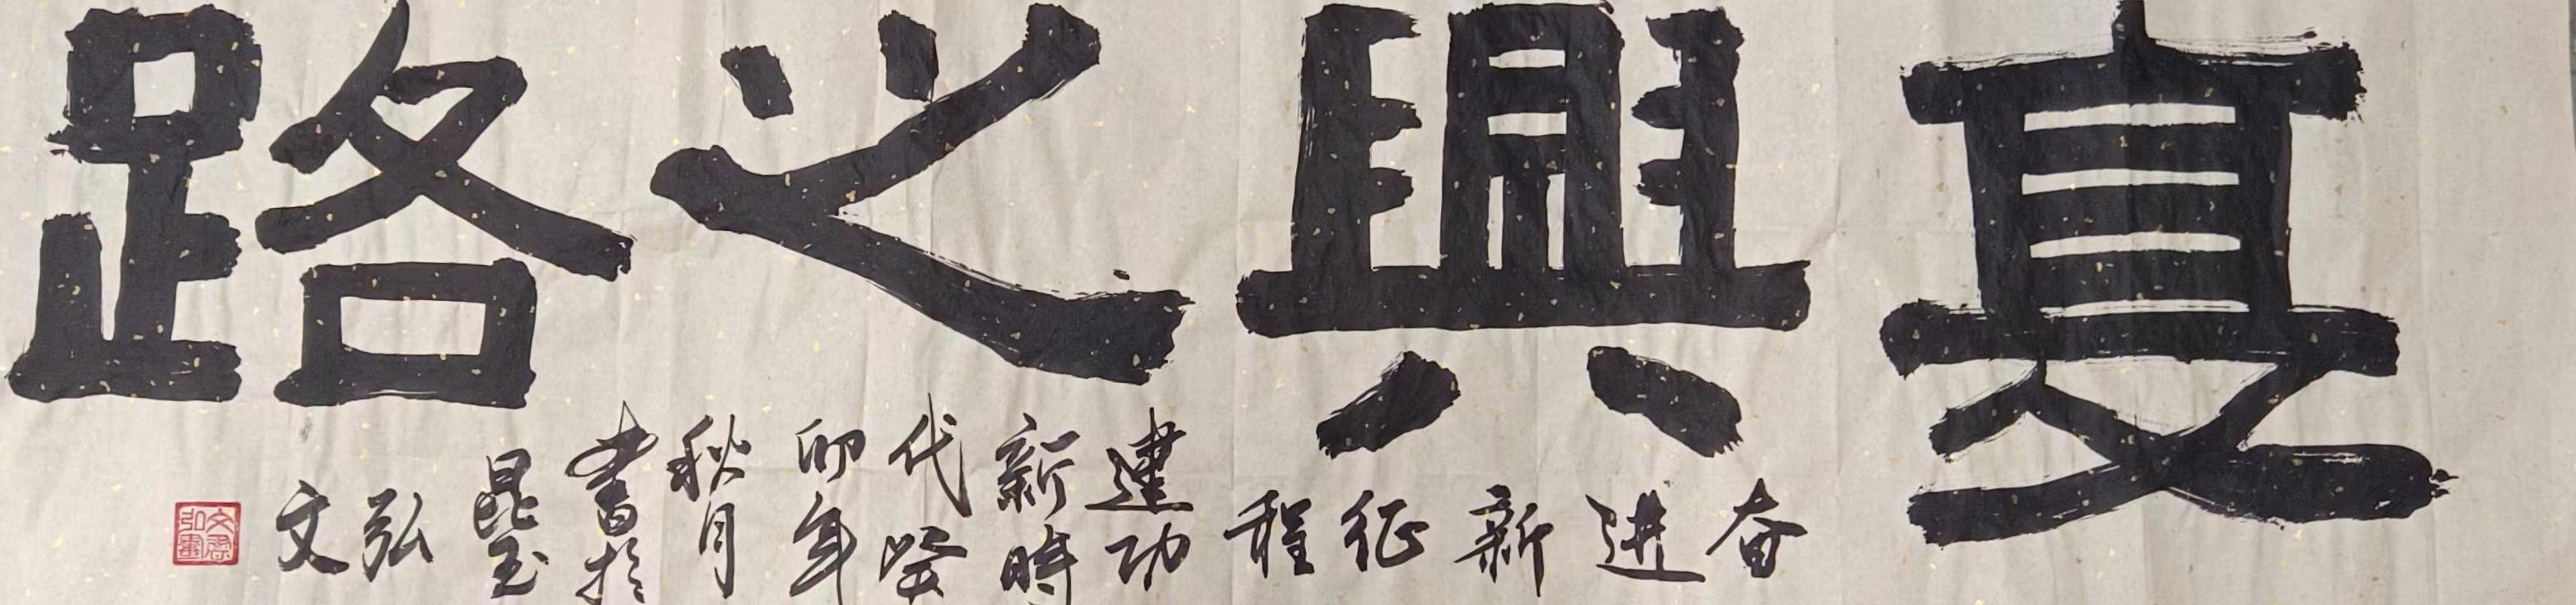 复興之路
奋进新征程
建功
新時
代癸
卯年
秋月
書於
昆玉
弘文